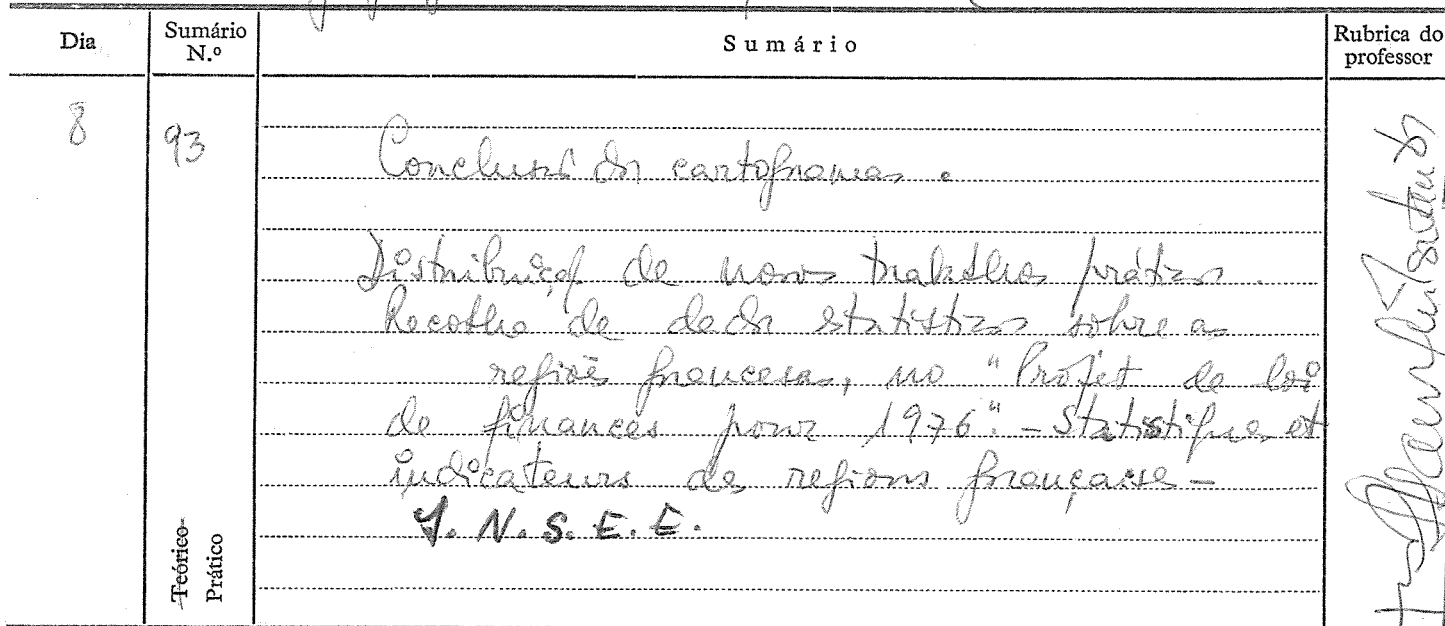 Dia
Sumário N.º
Sumário
Rubrica do professor
8
93
Conclusão dos cartogramas.
Distribuição de novos trabalhos práticos.
Recolha de dados statisticos sobre as
regiões francesas, no "Projet de loi
de finances pour 1976" - Statistiques et
indicateurs des regions française -
I. N. S. E. E.
Teórico-
Prático